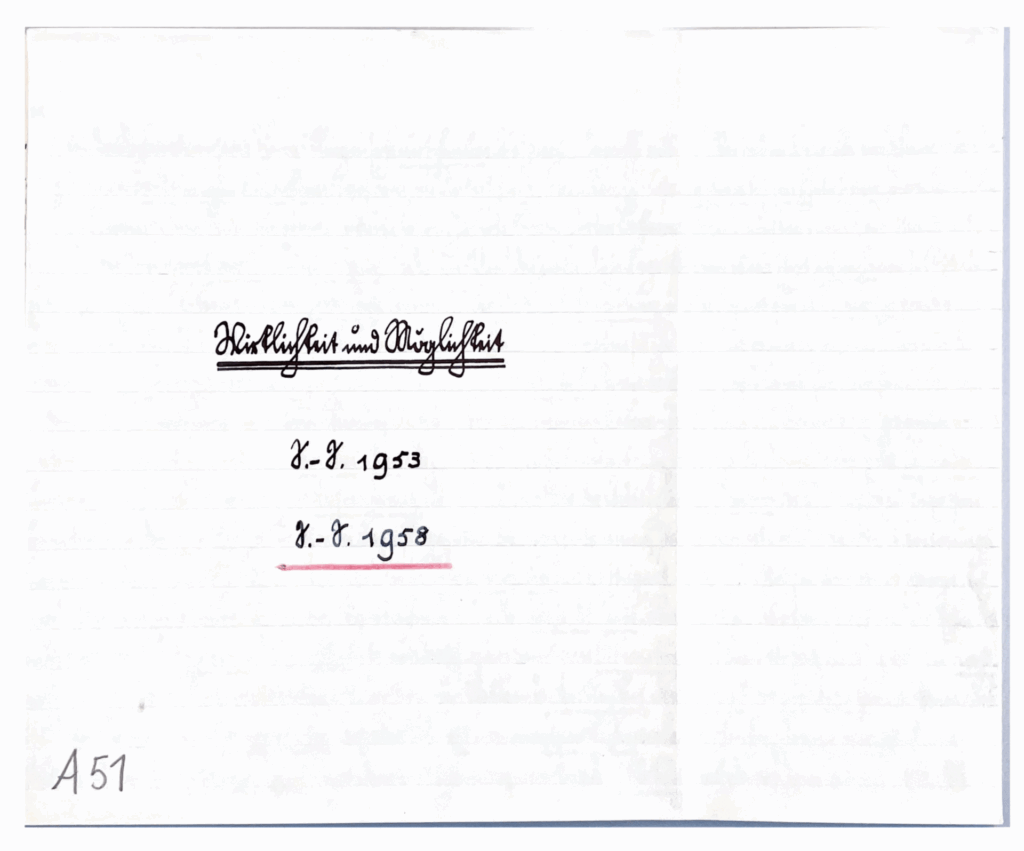 Wirklichkeit und Möglichkeit
S.-S. 1953
S.-S. 1958
A 51